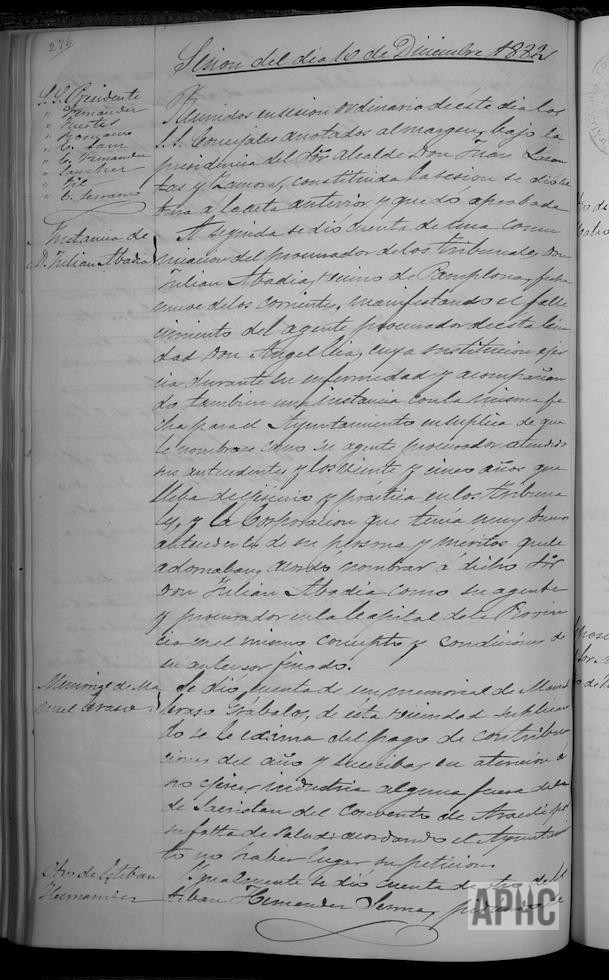 274
Sesion del dia 10 de Diciembre 1882
S.S. Presidente
" Fernandez
" Huste
" C. Sanz
" C. Fernandez
" Sanchez
" Gil
" C. Serrano
Reunidos en sesion ordinaria de éste dia los
S.S. Concejales anotados al margen, bajo la
presidencia del Sor. Alcalde Don Juan
tas y Zamora, constituida la sesion se dió lec
tura al acta anterior y quedó aprobada
Instancia de
D. Julian Abadia
A seguida se dió cuenta de una comu
nicacion del procurador de los tribunales Don
Julian Abadia, vecino de Pamplona, fecha
nueve de los corrientes, manifestando el falle
cimiento del agente procurador de esta Ciu
dad Don Angel Cia, cuya sustitucion ejer
cia durante su enfermedad y acompañan
do tambien una instancia con la misma fe
cha para el Ayuntamiento en suplica de que
le nombrase como su agente procurador atendido
sus antecedentes y los veinte y cinco años que
lleba de ejercicio y práctica en los tribuna
les, y la Corporacion que tenia muy buenos
antecedentes de su persona y meritos que le
adornaban, acordó nombrar á dicho Sor.
Don Julian Abadia como su agente
y procurador en la Capital de la Provin
cia en el mismo concepto y condiciones de
su antecesor finado.
Memorial de Ma
nuel Craso
Se dió cuenta de un memorial de Manuel
Craso Grabalos, de ésta vecindad suplican
do se le exima del pago de contribu
ciones del año y sucesibos, en atencion á
no ejercer industria alguna fuera de la
de Sacristan del Convento de Araceli por
su falta de salud: acordando el Ayuntamien
to no haber lugar su peticion.
Otro de Esteban
Hernandez
Igualmente se dió cuenta de otro de Es
teban Hernandez Serma, pidiendo se
APHC